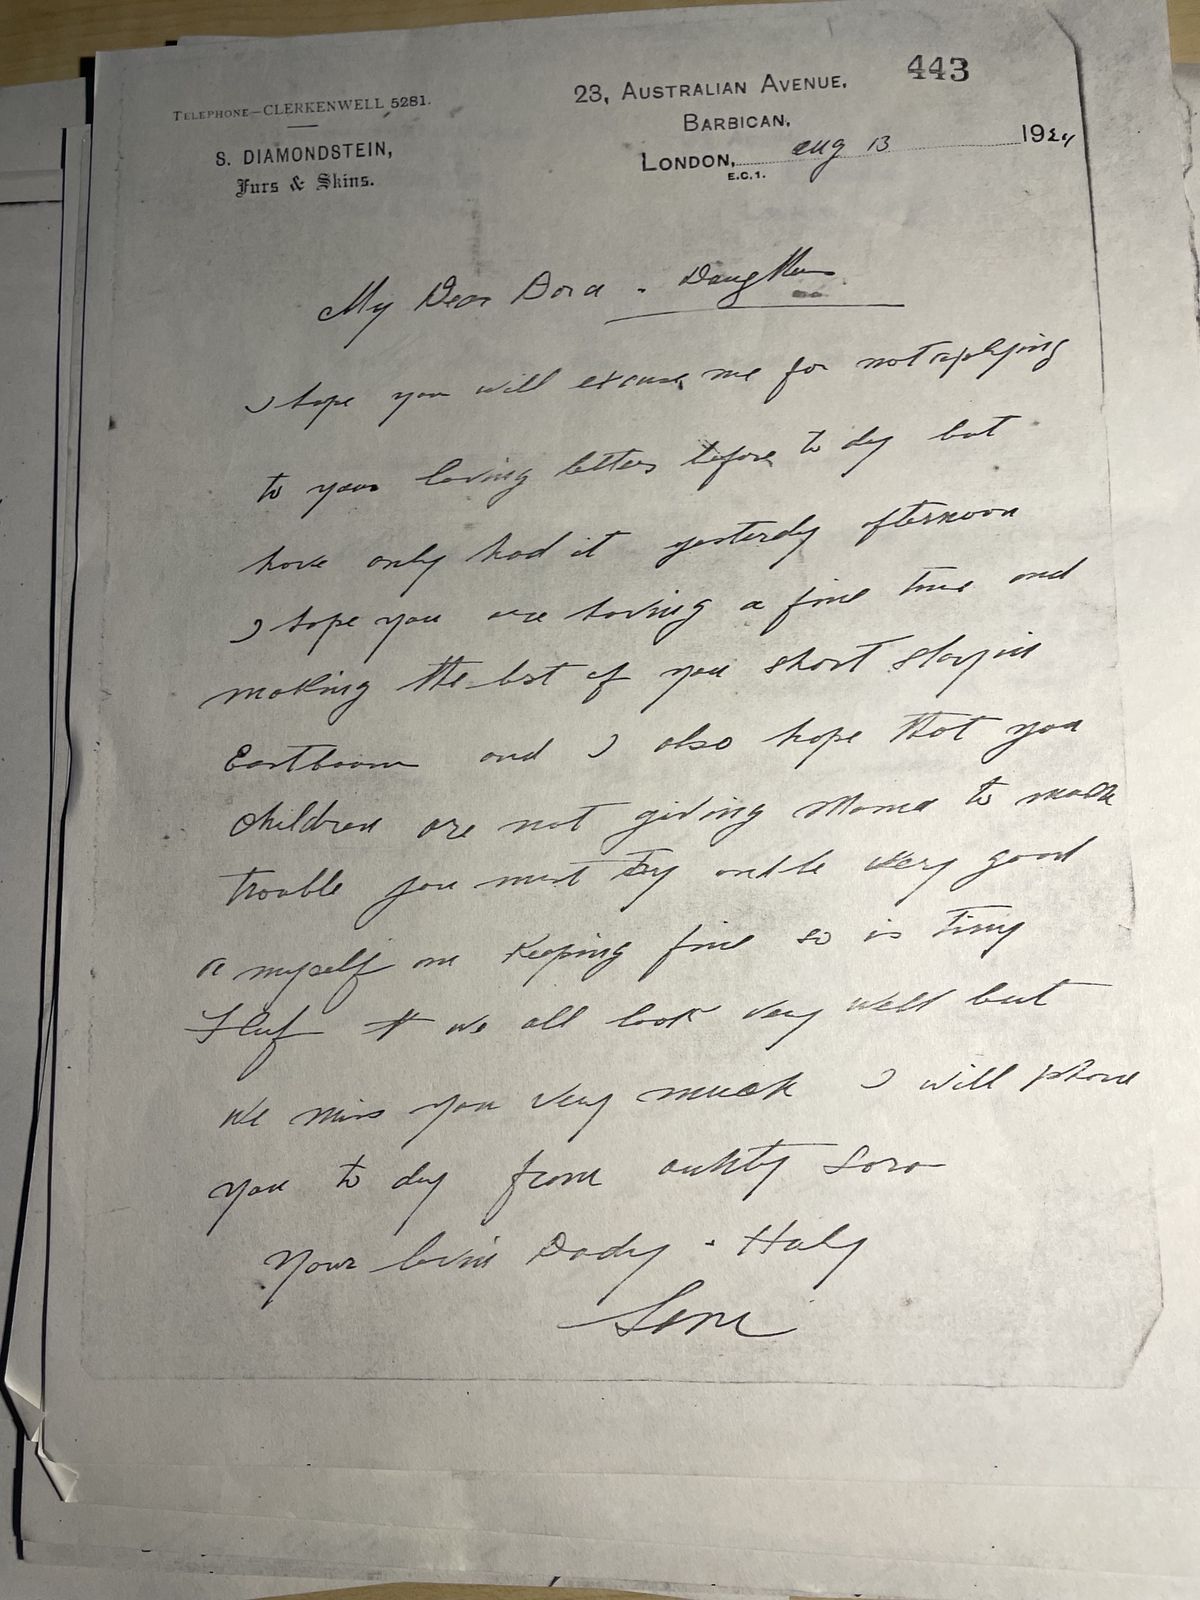 443
TELEPHONE—CLERKENWELL 5281.
S. DIAMONDSTEIN,
Furs & Skins.
23, AUSTRALIAN AVENUE,
BARBICAN,
LONDON, aug 13 1924
E.C.1.
My Dear Dora - Daughter
I hope you will excuse me for not replying
to your loving letters before to day but
have only had it yesterdy afternoon
I hope you are having a fine time and
making the best of you short stay in
Eastbourn and I also hope that you
children are not giving Mama to much
trouble you must try and be very good
a myself am keeping fine so is Tiny
Fluf & we all look very well but
we miss you very much I will phone
you to day from aunty Sora
Your lovin Dady -